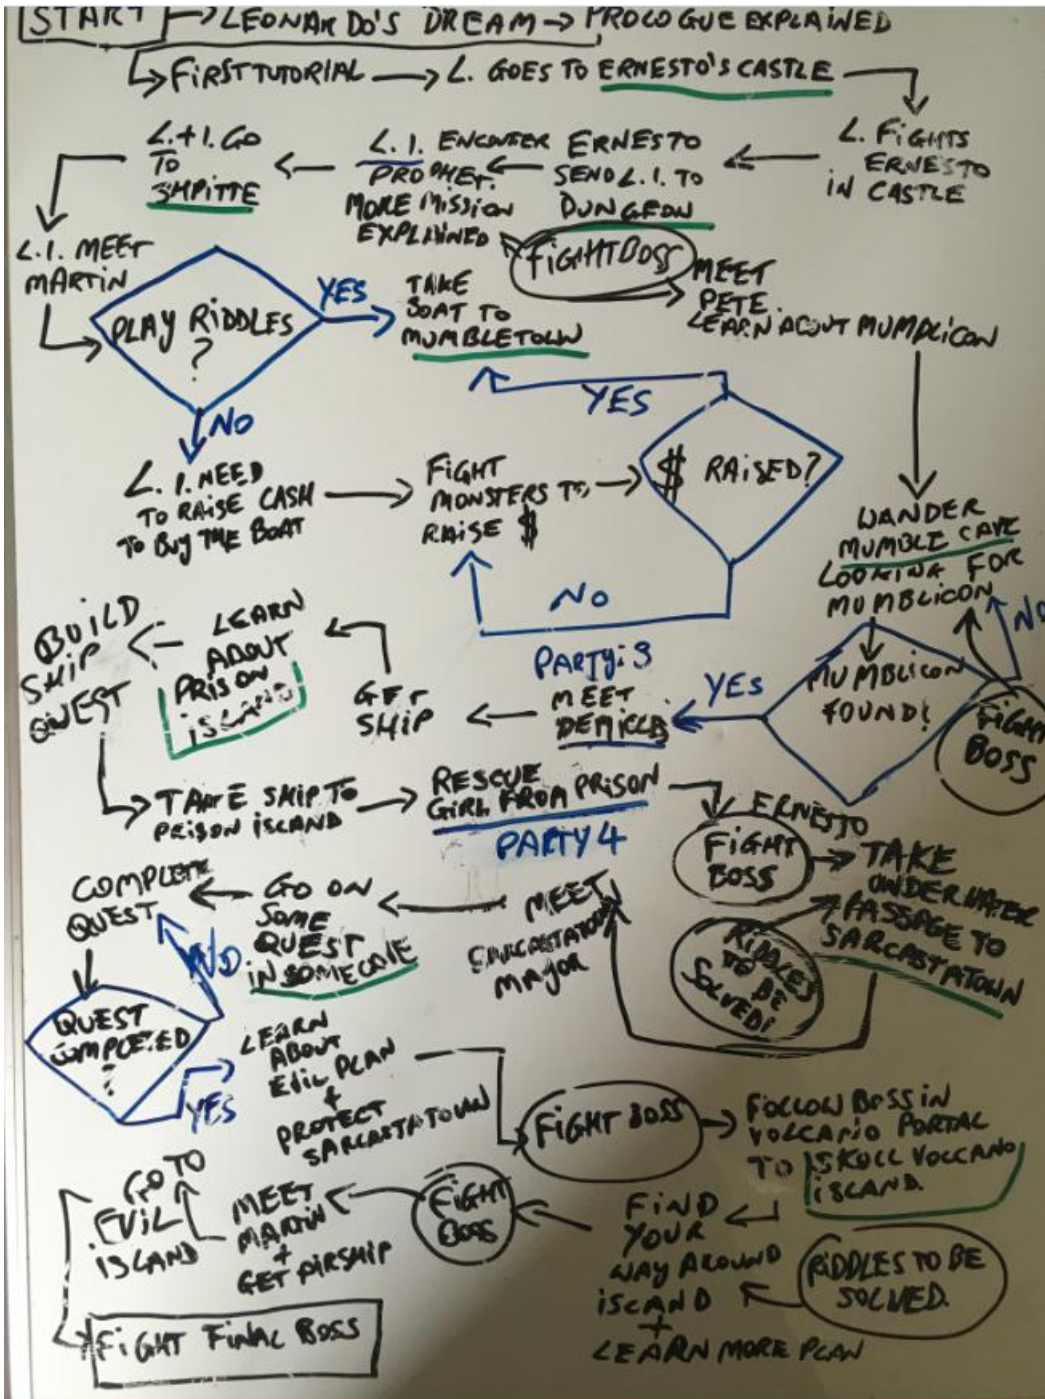 START → LEONARDO'S DREAM → PROLOGUE EXPLAINED
FIRST TUTORIAL → L. GOES TO ERNESTO'S CASTLE
L. FIGHTS
ERNESTO
IN CASTLE
ERNESTO
SEND L. I. TO
DUNGEON
L. I. ENCOUTER
PROPHET.
MORE MISSION
EXPLAINED
L. + I. GO
TO
SHPITTE
L. I. MEET
MARTIN
PLAY RIDDLES
?
YES
TAKE
BOAT TO
MUMBLETOWN
FIGHT BOSS
MEET
PETE.
LEARN ABOUT MUMBLICON
NO
L. I. NEED
TO RAISE CASH
TO BUY THE BOAT
FIGHT
MONSTERS TO
RAISE $
$ RAISED?
YES
NO
WANDER
MUMBLE CAVE
LOOKING FOR
MUMBLICON
NO
MUMBLICON
FOUND?
FIGHT
BOSS
YES
PARTY: 3
MEET
GET
SHIP
LEARN
ABOUT
PRISON
ISLAND
BUILD
SHIP
QUEST
TAKE SHIP TO
PRISON ISLAND
RESCUE
GIRL FROM PRISON
PARTY 4
ERNESTO
FIGHT
BOSS
TAKE
UNDERWATER
PASSAGE TO
SARCASTATOWN
RIDDLES
TO BE
SOLVED!
MEET
SARCASTATOWN
MAJOR
GO ON
SOME
QUEST
IN SOME CAVE
COMPLETE
QUEST
NO
QUEST
COMPLETED
?
YES
LEARN
ABOUT
EVIL PLAN
+
PROTECT
SARCASTATOWN
FIGHT BOSS
FOLLOW BOSS IN
VOLCANO PORTAL
TO SKULL VOLCANO
ISLAND.
FIND
YOUR
WAY AROUND
ISLAND
+
LEARN MORE PLAN
RIDDLES TO BE
SOLVED.
FIGHT
BOSS
MEET
MARTIN
+
GET AIRSHIP
GO TO
EVIL
ISLAND
FIGHT FINAL BOSS